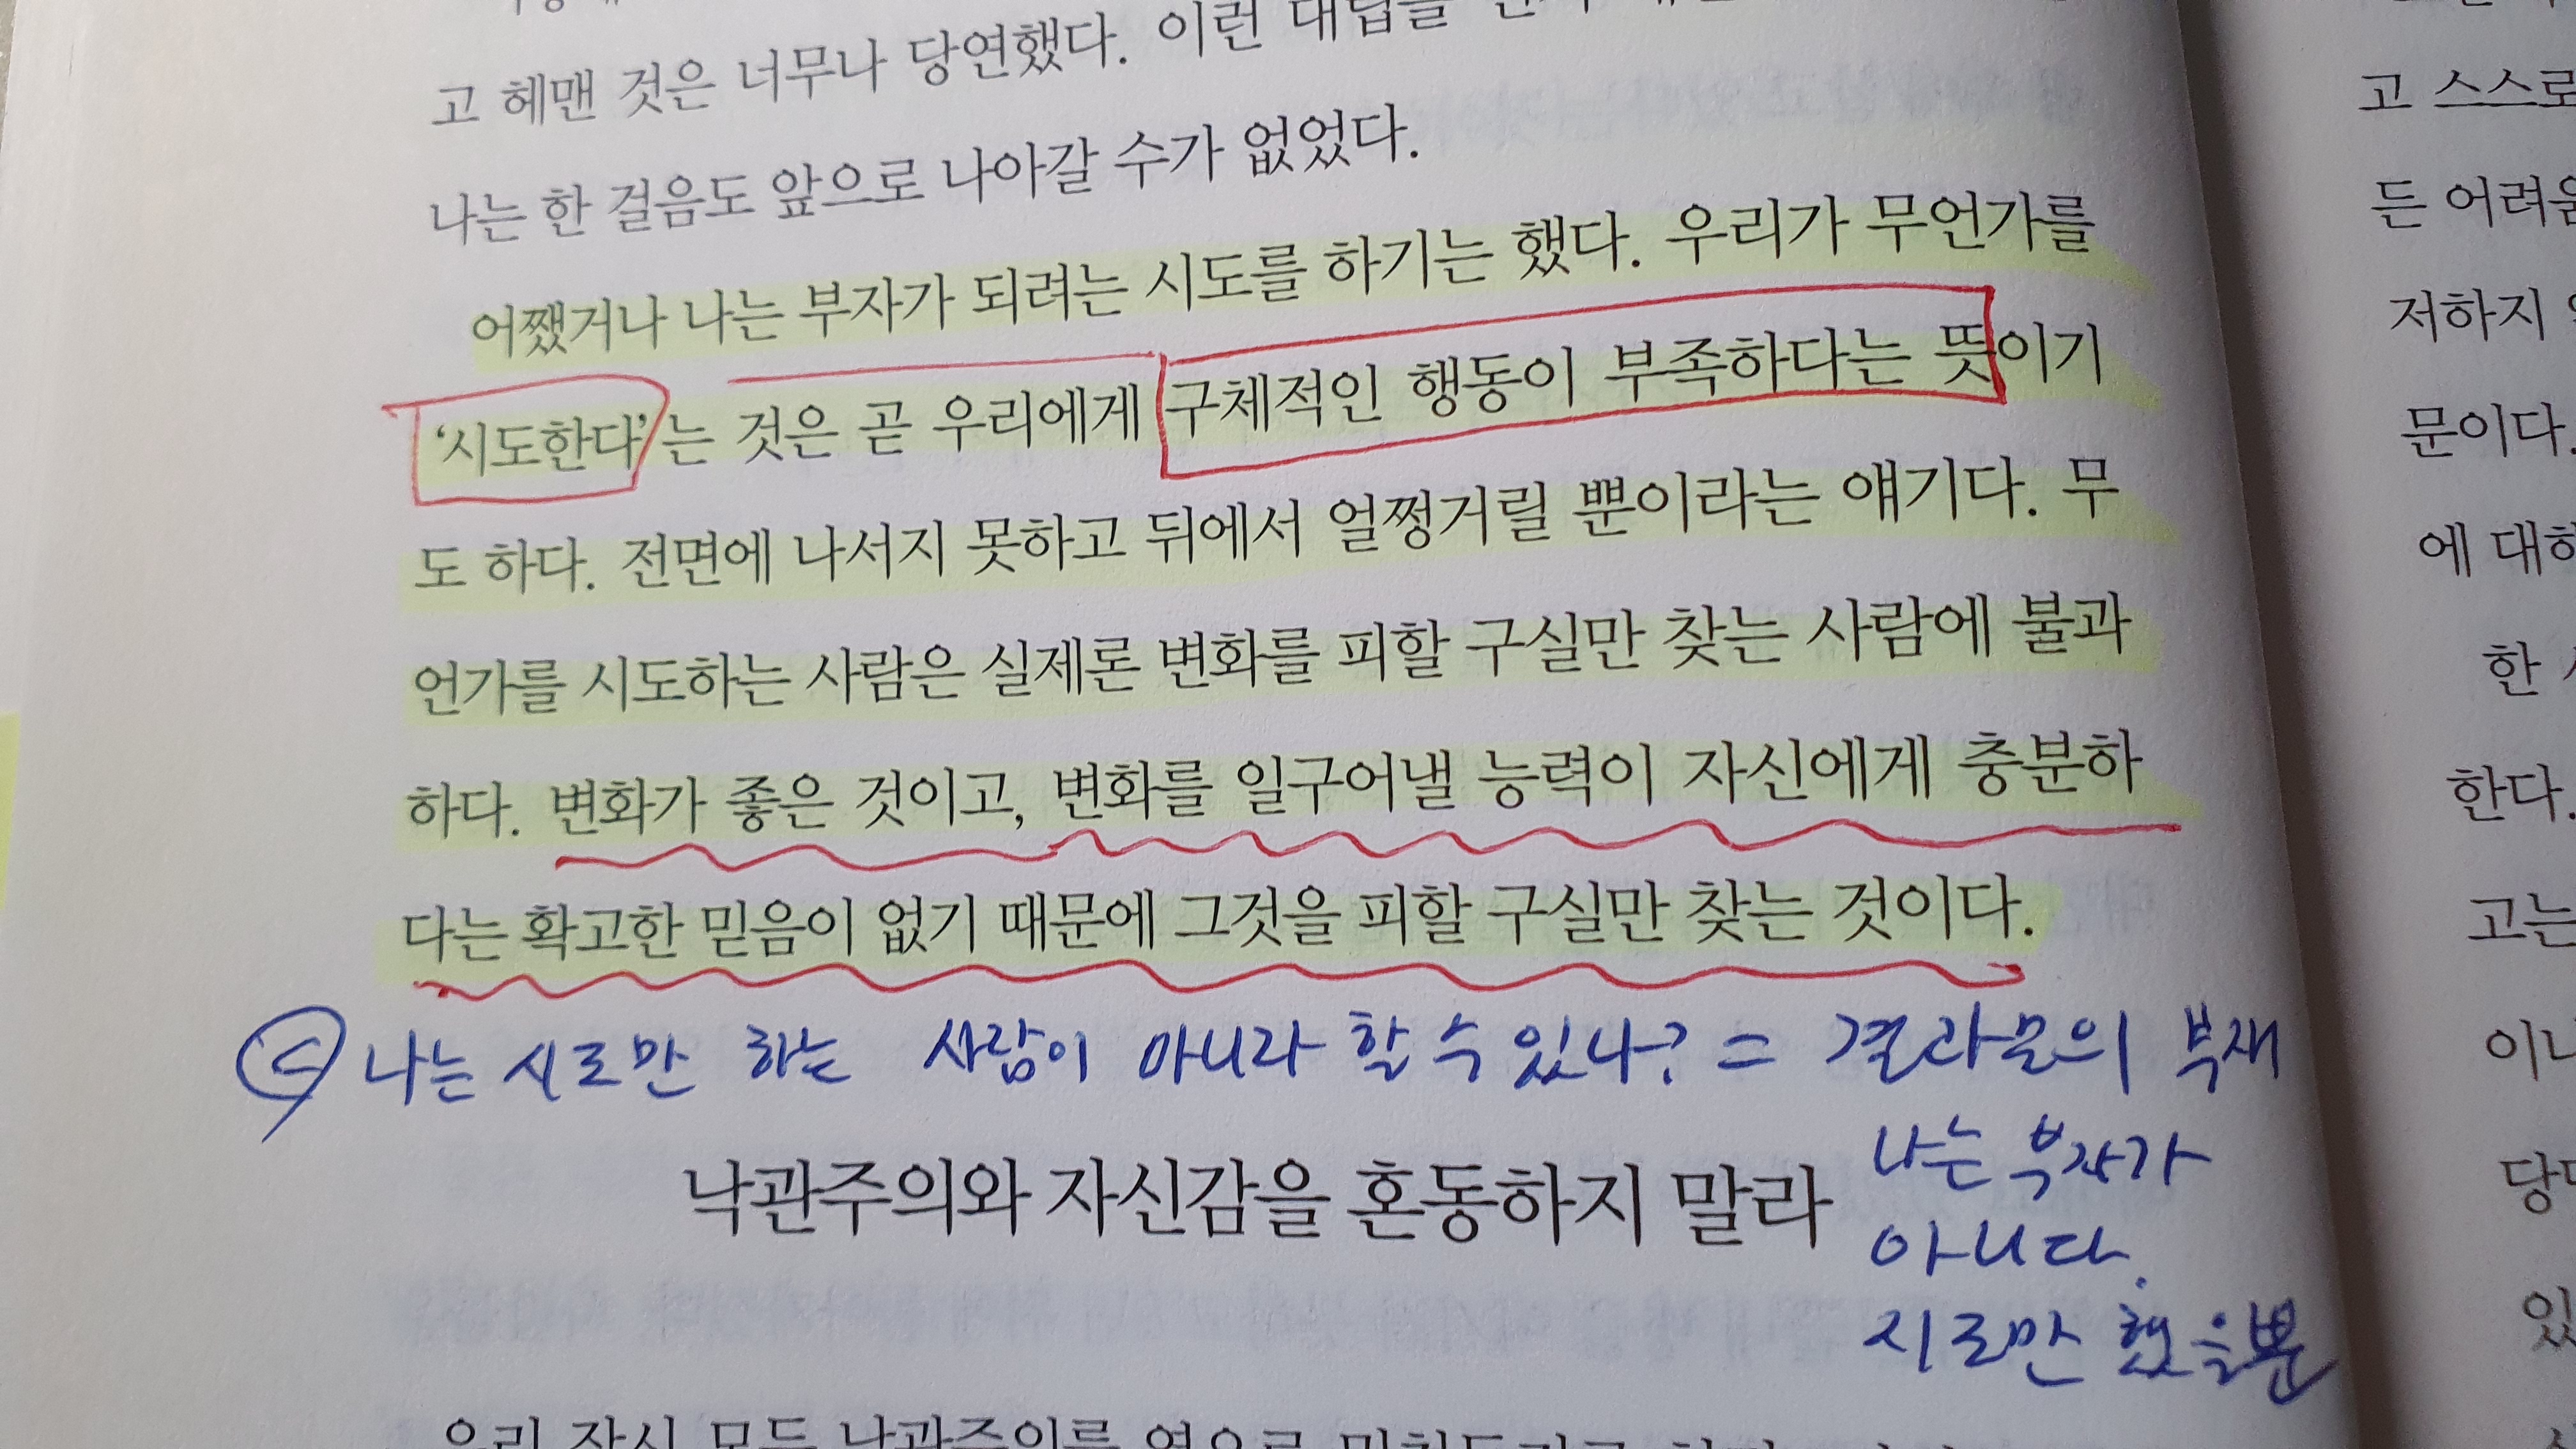 고 헤맨 것은 너무나 당연했다. 이런 대답을
나는 한 걸음도 앞으로 나아갈 수가 없었다.
어쨌거나 나는 부자가 되려는 시도를 하기는 했다. 우리가 무언가를
‘시도한다’는 것은 곧 우리에게 구체적인 행동이 부족하다는 뜻이기
도 하다. 전면에 나서지 못하고 뒤에서 얼쩡거릴 뿐이라는 얘기다. 무
언가를 시도하는 사람은 실제론 변화를 피할 구실만 찾는 사람에 불과
하다. 변화가 좋은 것이고, 변화를 일구어낼 능력이 자신에게 충분하
다는 확고한 믿음이 없기 때문에 그것을 피할 구실만 찾는 것이다.
나는 시도만 하는 사람이 아니라 할 수 있나? = 결과물의 부재
나는 부자가
아니다.
시도만 했을뿐
낙관주의와 자신감을 혼동하지 말라
우리 자신 모두 낙관주의를
고 스스로
든 어려움
저하지
문이다.
에 대하
한
한다.
고는
이나
있